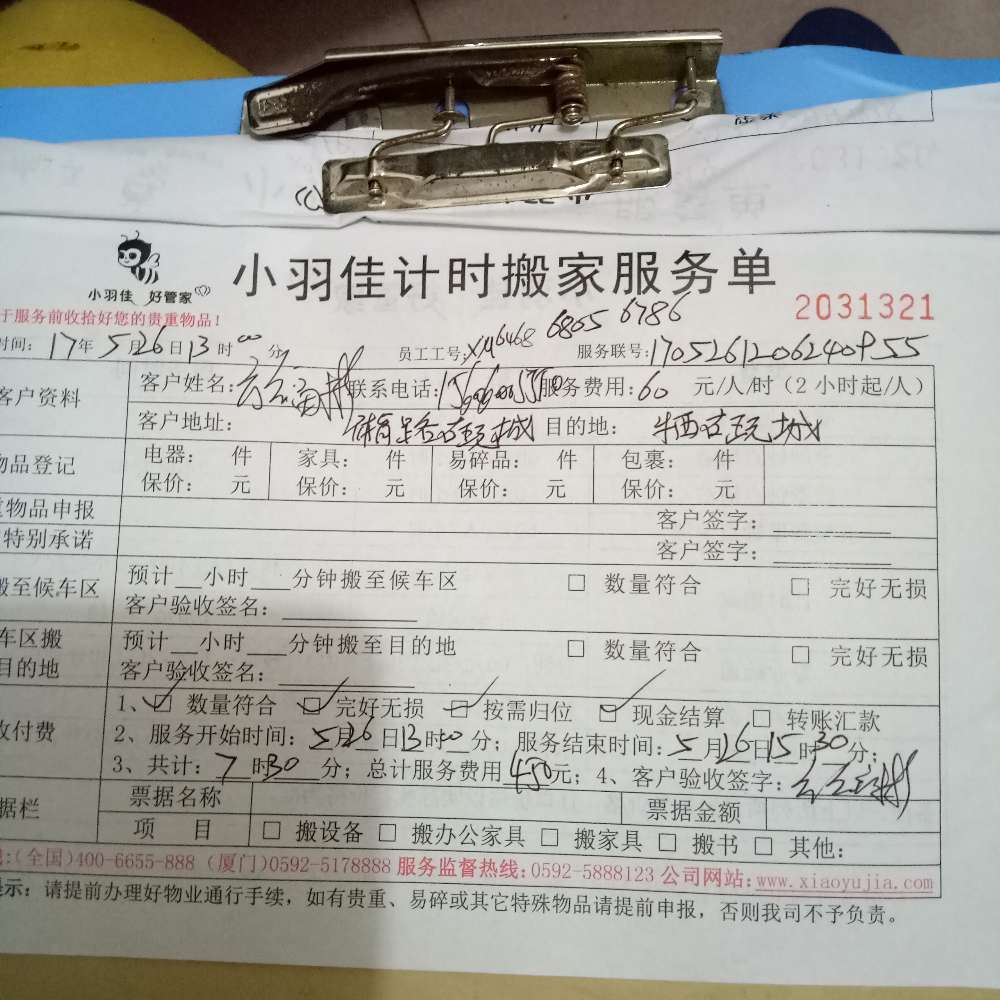 小羽佳 好管家
小羽佳计时搬家服务单
2031321
于服务前收拾好您的贵重物品！
时间：17年5月26日13时00分 员工工号：XM6468 6805 6786 服务联号：
客户资料 客户姓名： 联系电话： 服务费用：60 元/人/时（2小时起/人）
客户地址： 目的地：
物品登记 电器： 件 家具： 件 易碎品： 件 包裹： 件
保价： 元 保价： 元 保价： 元 保价： 元
物品申报 客户签字：
特别承诺 客户签字：
搬至候车区 预计__小时___分钟搬至候车区 □ 数量符合 □ 完好无损
客户验收签名：
车区搬 预计__小时___分钟搬至目的地 □ 数量符合 □ 完好无损
目的地 客户验收签名：
收付费 1、☑ 数量符合 ☑ 完好无损 ☑ 按需归位 ☑ 现金结算 □ 转账汇款
2、服务开始时间：5月26日13时00分；服务结束时间：5月26日15时30分；
3、共计：7时30分；总计服务费用450元；4、客户验收签字：
据栏 票据名称 票据金额
项 目 □ 搬设备 □ 搬办公家具 □ 搬家具 □ 搬书 □ 其他：
:(全国)400-6655-888（厦门)0592-5178888 服务监督热线:0592-5888123 公司网站:www.xiaoyujia.com
提示：请提前办理好物业通行手续，如有贵重、易碎或其它特殊物品请提前申报，否则我司不予负责。